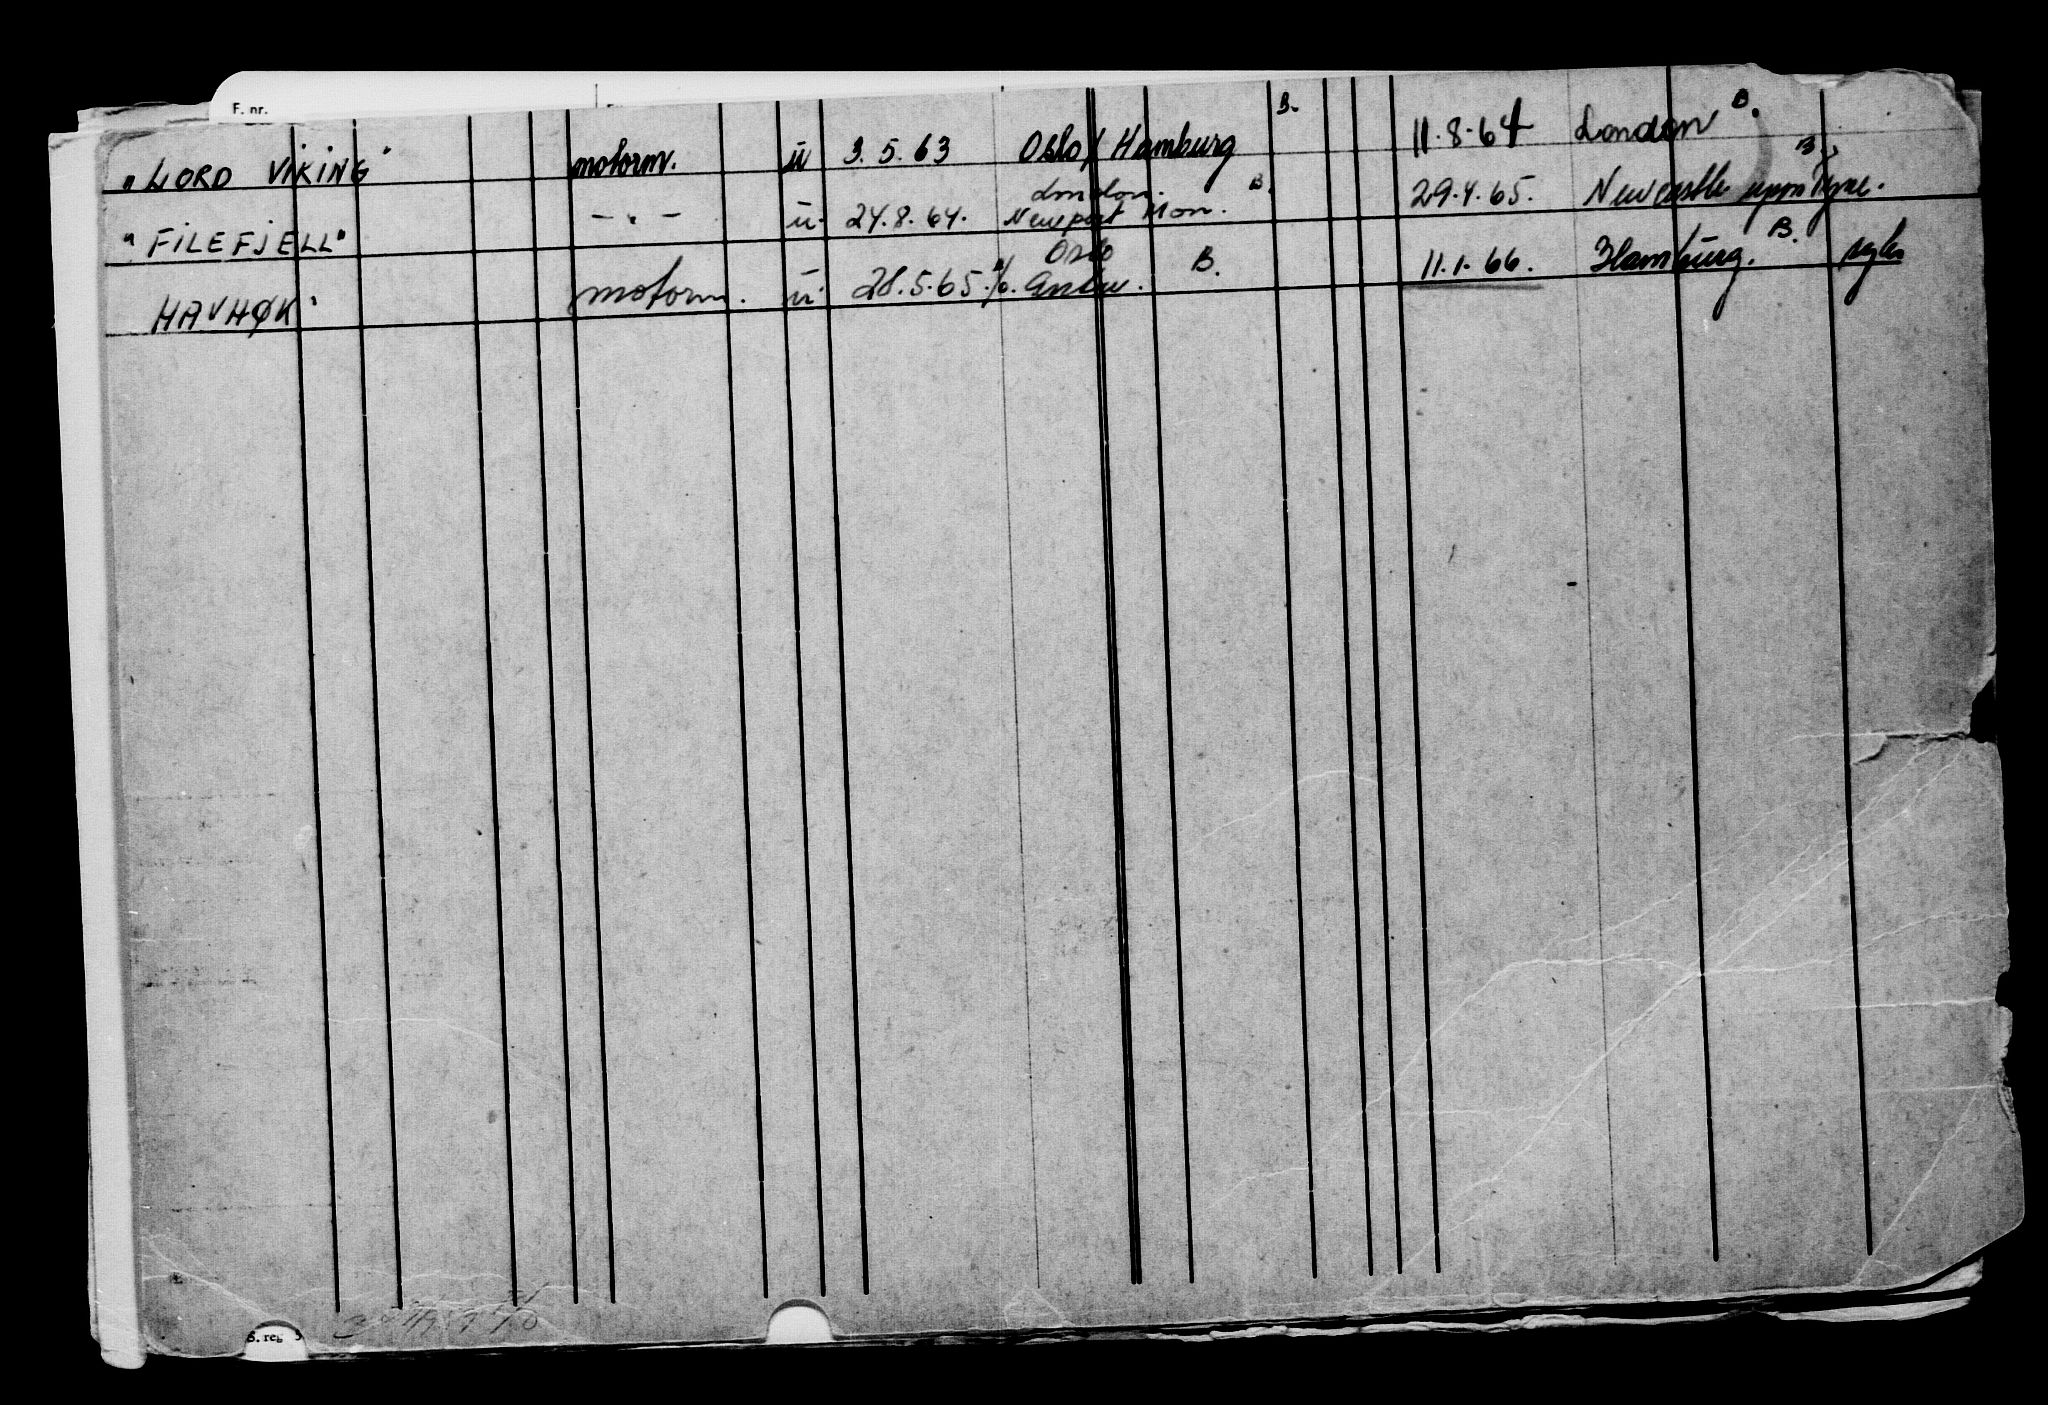 F. nr.
"LORD VIKING" motorm. u 3.5.63 Oslo/Hamburg B. 11.8.64 London B.
"FILEFJELL" - " - u. 24.8.64. London. Newport Mon. B. 29.4.65. Newcastle upon Tyne. B.
HAVHØK" motorm. u. 28.5.65. Oslo Antw. B. 11.1.66. Hamburg. B.
S. reg